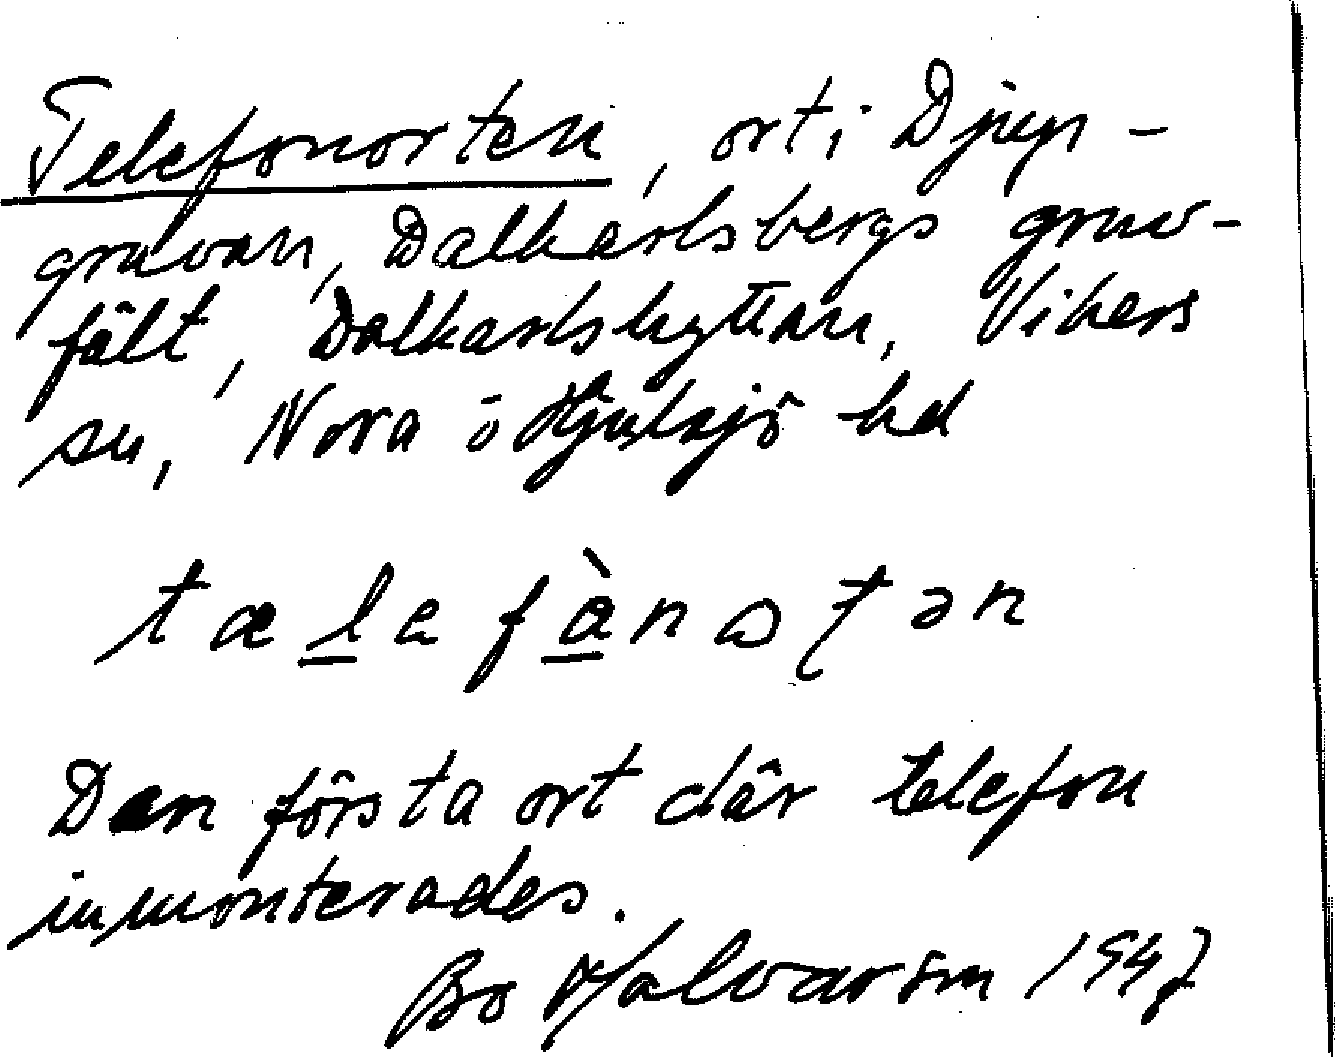 Telefonorten, ort i Djup-
gruvan, Dalkarlsbergs gruv-
fält, Dalkarlshyttan, Vikers
sn, Nora o Hjulsjö hd
tælefànɔʈən
Den första ort där telefon
inmonterades.
Bo Halvarson 1947